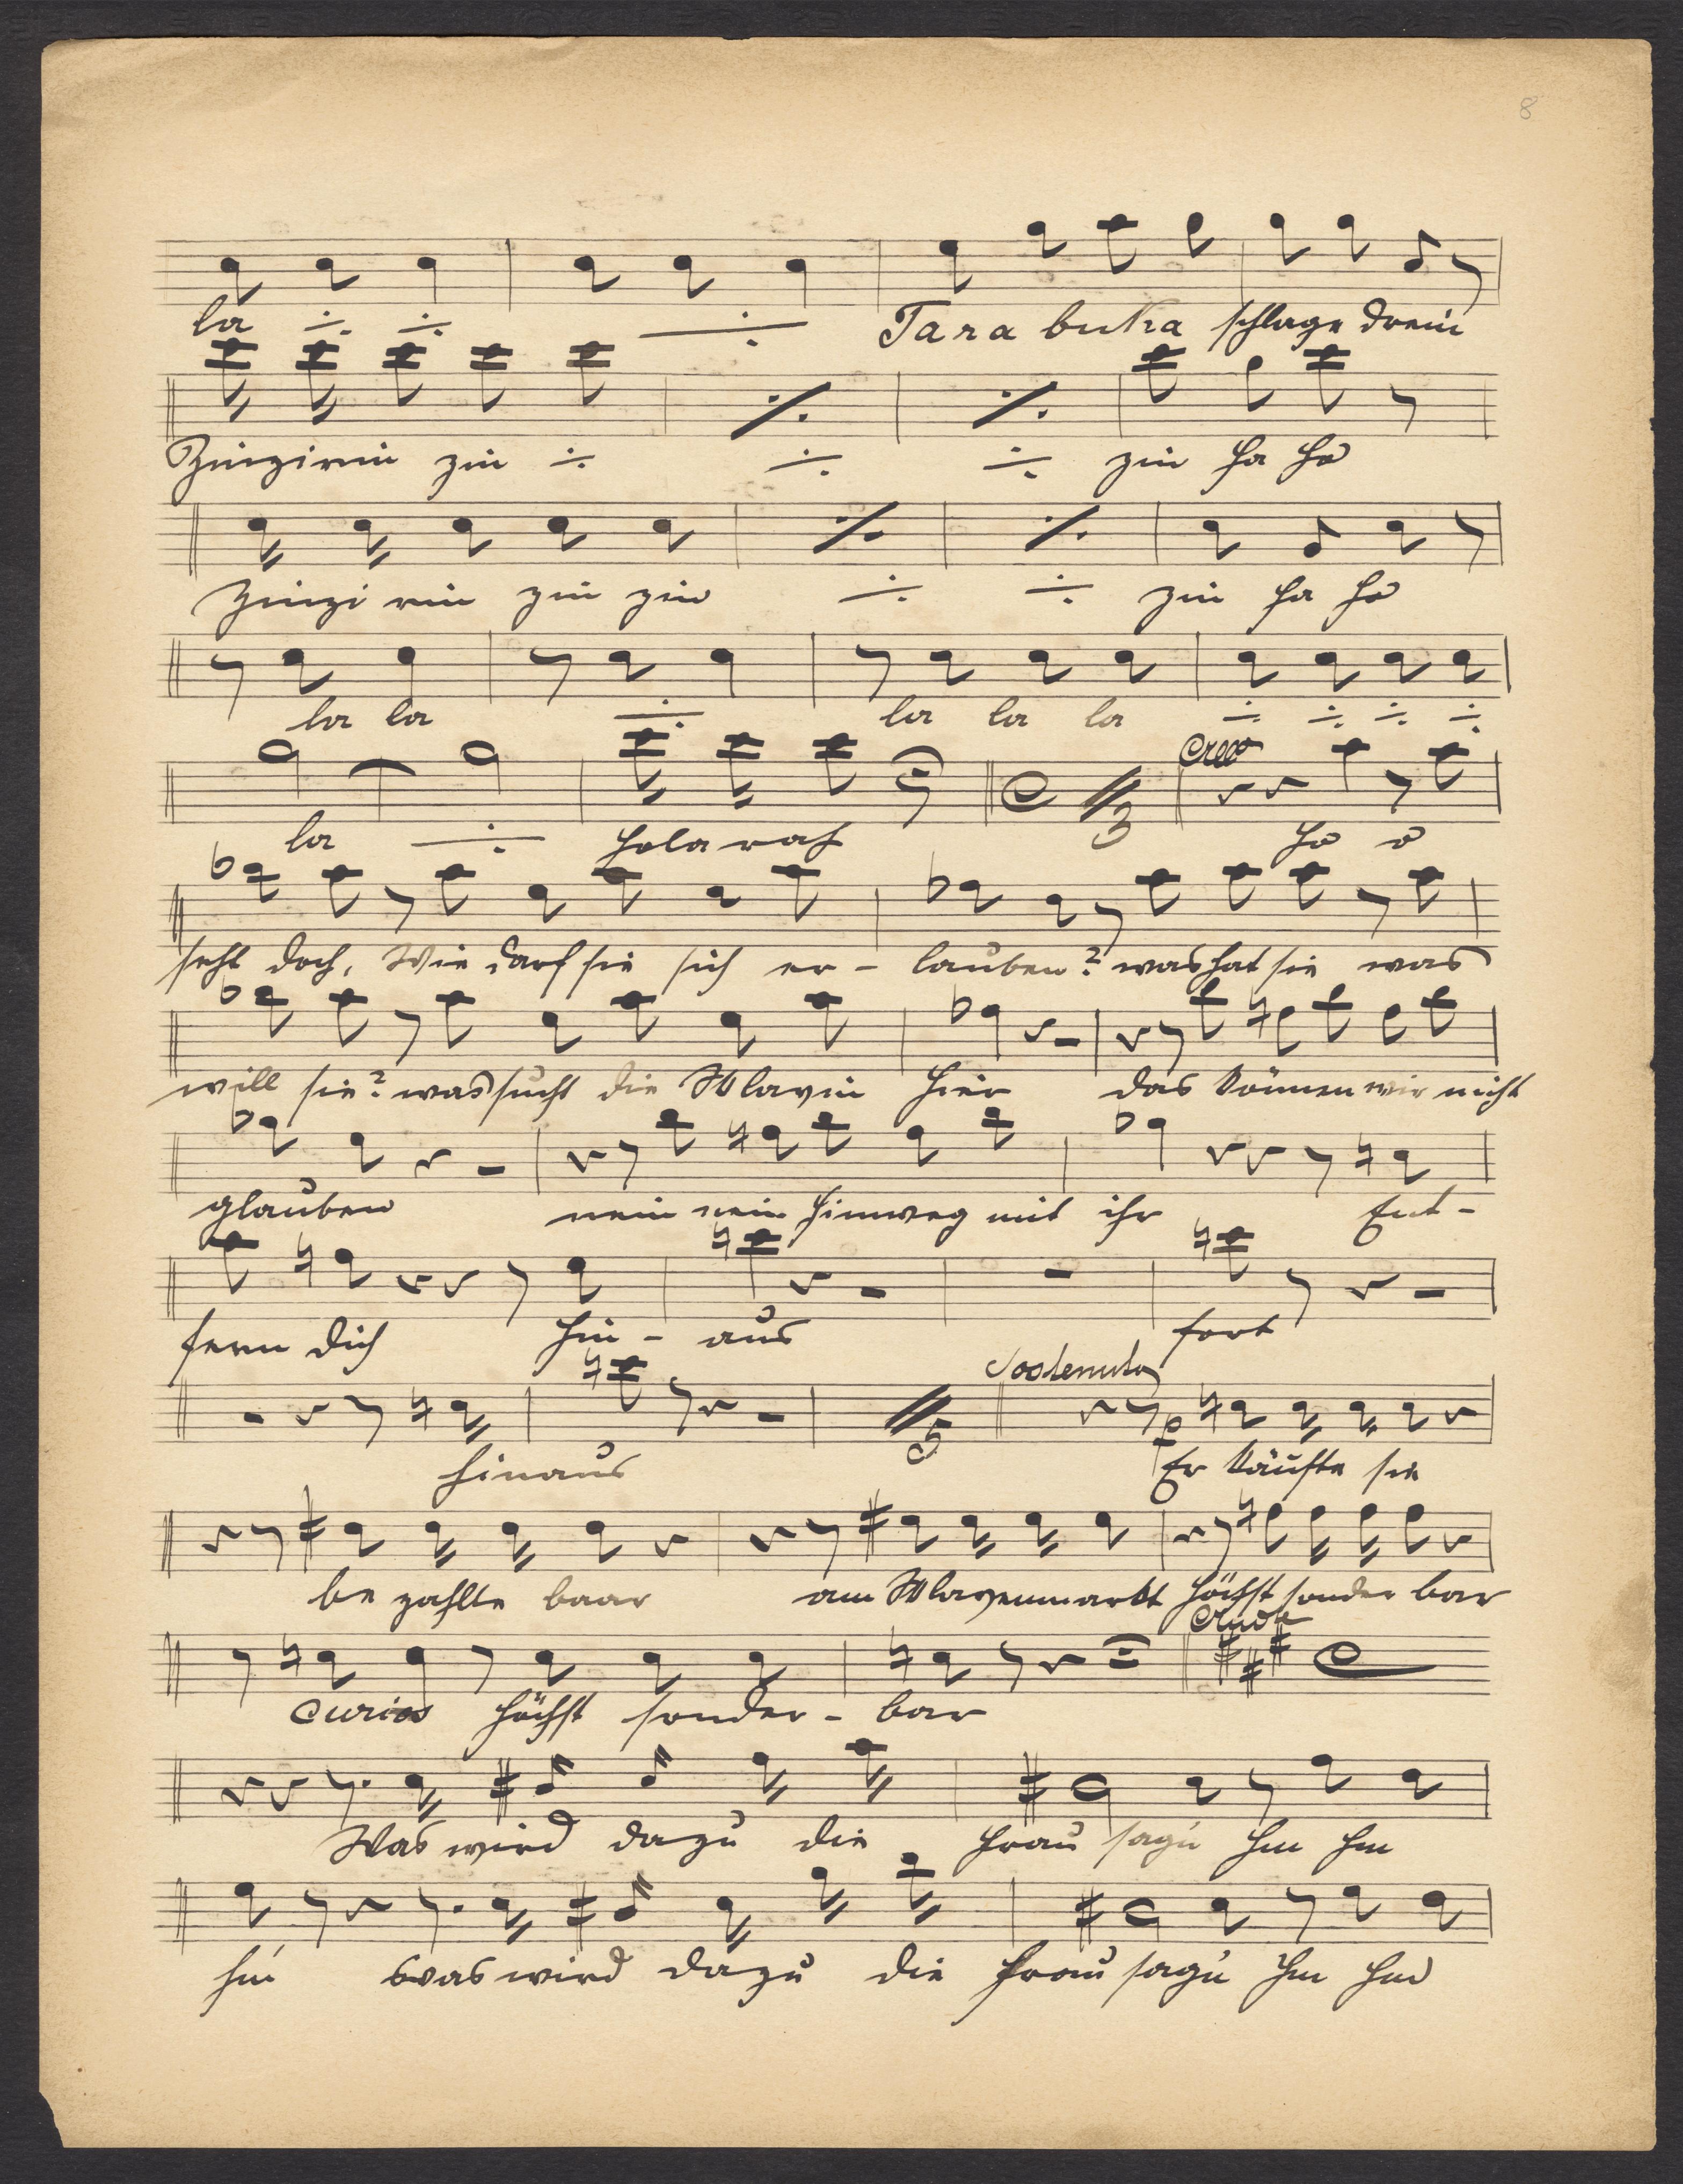 8
la ·/. ·/. ·/. Tara buka schlage drein
Zinzirin zin ·/. ·/. ·/. zin ha ho
Zinzi rin zin zin ·/. ·/. zin ha ho
la la ·/. la la la ·/. ·/. ·/. ·/.
3
la ·/. holarah ho o
seht doch, Wie darf sie sich er- lauben? was hat sie was
will sie? was sucht die Sklavin hier das können wir nicht
glauben nein nein hinweg mit ihr Ent-
fern dich hin- aus fort
Sostenuto
5 p
hinaus Er kaüfte sie
be zahlte baar am Sklavenmarkt höchst sonder bar
Andte
Curios höchst sonder- bar
Was wird dazu die Frau sag'n hm hm
hm was wird dazu die Frau sag'n hm hm